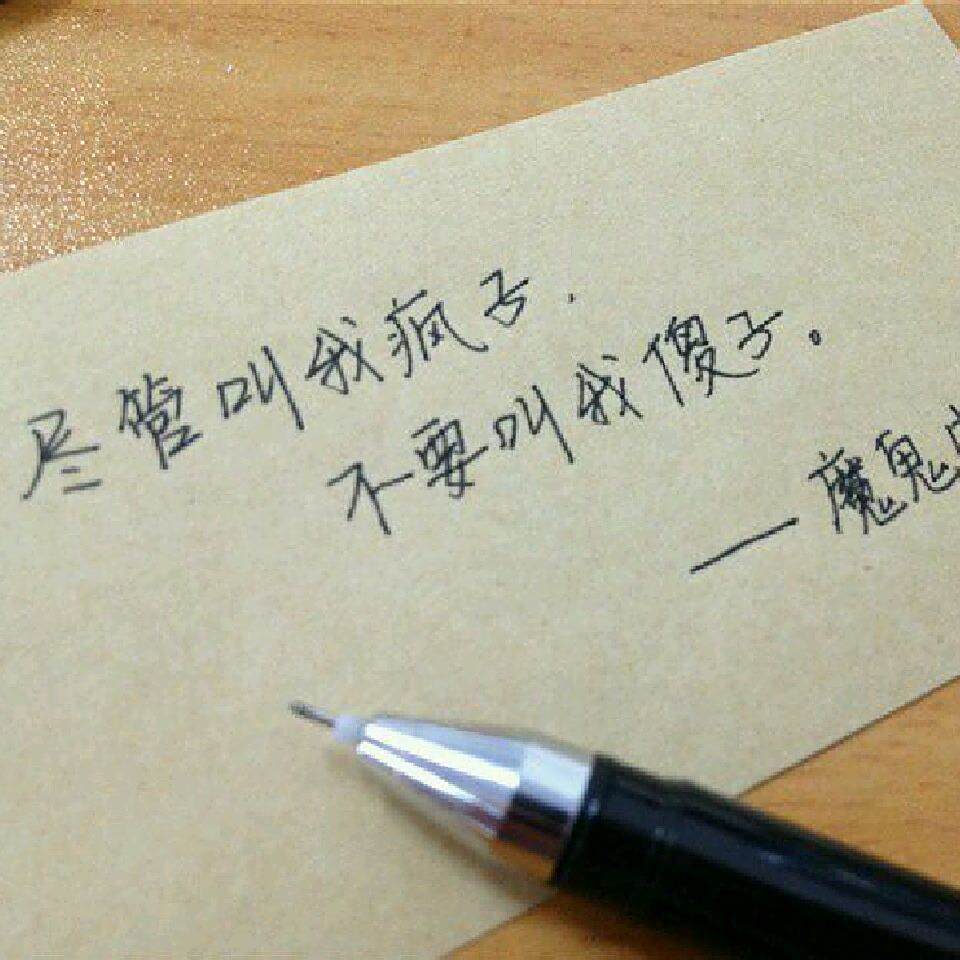 尽管叫我疯子.
不要叫我傻子。
—魔鬼